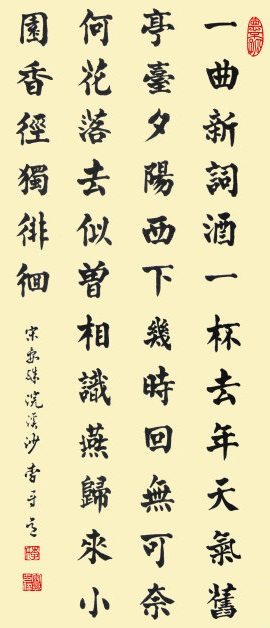 一曲新詞酒一杯去年天氣舊
亭臺夕陽西下幾時回無可奈
何花落去似曾相識燕歸來小
園香徑獨徘徊
宋晏殊浣溪沙